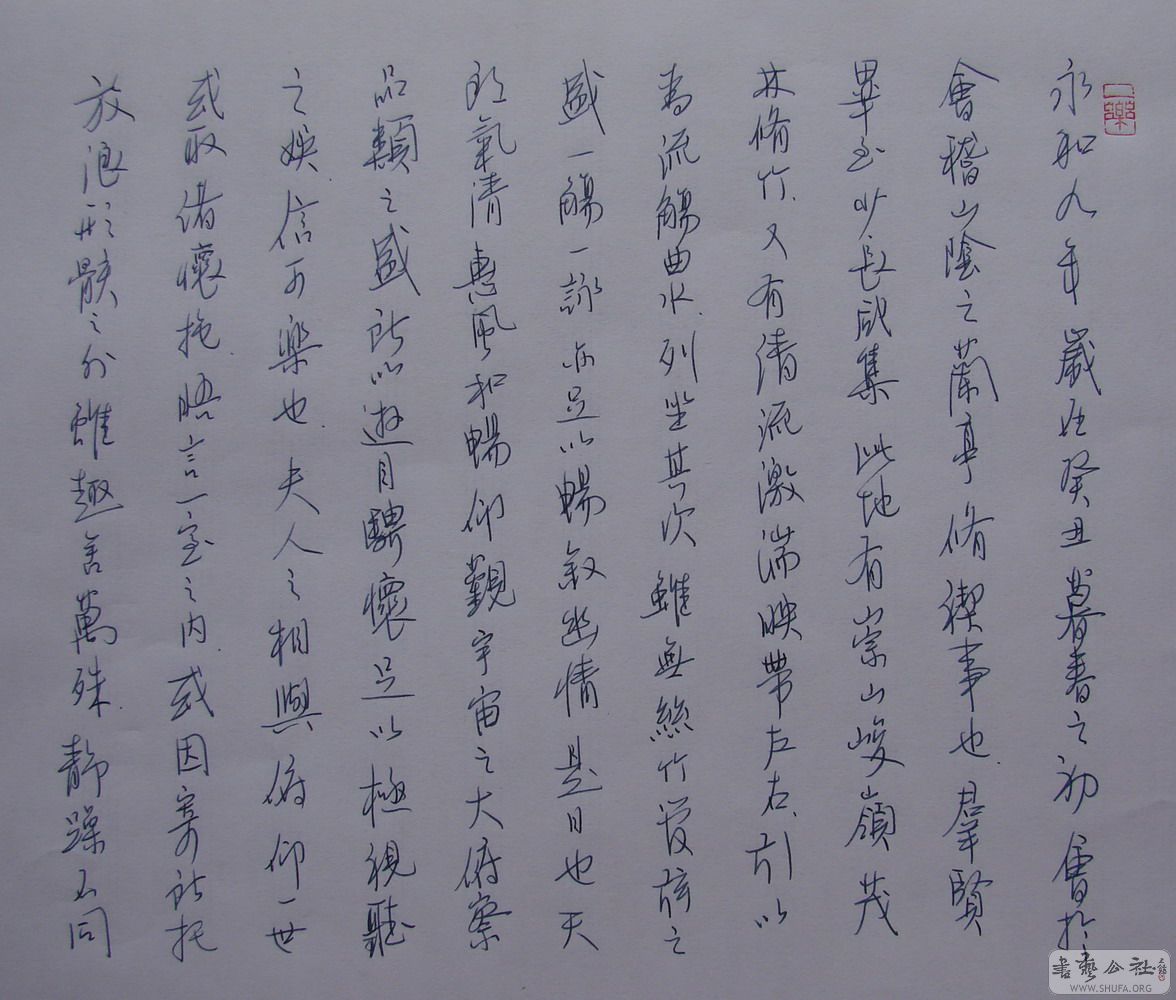 一樂
永和九年歲在癸丑暮春之初會於
會稽山陰之蘭亭脩禊事也羣賢
畢至少長咸集此地有崇山峻嶺茂
林脩竹又有清流激湍映帶左右引以
為流觴曲水列坐其次雖無絲竹管弦之
盛一觴一詠亦足以暢敘幽情是日也天
朗氣清惠風和暢仰觀宇宙之大俯察
品類之盛所以遊目騁懷足以極視聽
之娛信可樂也夫人之相與俯仰一世
或取諸懷抱晤言一室之內或因寄所托
放浪形骸之外雖趣舍萬殊靜躁不同
書藝公社
WWW.SHUFA.ORG